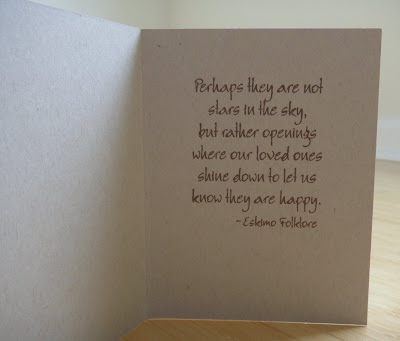 Perhaps they are not
stars in the sky,
but rather openings
where our loved ones
shine down to let us
know they are happy.
~ Eskimo Folklore